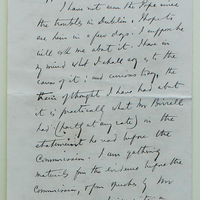 I have not seen the Pope since
the troubles in Dublin. I hope to
see him in a few days. I suppose he
will ask me about it. I have in
my mind what I shall say as to the
cause of it; and curious to say, the
theory I thought I have had about
it is practically what Mr Birrell
had (partly at any rate) in the
statement he read before the
Commission. I am gathering
materials from the evidence before the
Commission, from speeches by Mr